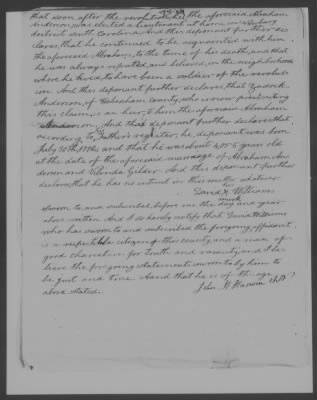 that soon after the revolution the aforesaid Abraham
Anderson, was elected a lieutenant at horn in
district south Carolina. And this deponent further de-
clares, that he continued to be acquainted with him,
the aforesaid Abraham, to the time of his death, and that
he was always reputed, and believed, in the neighborhood
where he lived, to have been a soldier of the revolut-
ion. And this deponent further declares that Zadock
Anderson, of Habesham county, who is now prosecuting
this claim is an heir, to him the aforesaid Abraham
Anderson, And this deponent further declares that
according to Father's register, he deponent was born
July 20th 1776, and that he was about 4, or 5 years old
at the date of the aforesaid marriage of Abraham An-
derson and Gilder. And this deponent further
declares that he has no interest in this matter whatever
his
David X Williams
mark
Sworn to, and subscribed before me the day and year
above written And I do hereby certify that David Williams
who has sworn to and subscribed the foregoing affidavit,
is a respectable citizen of this county, and a man of
good character for truth and veracity, and I be-
lieve the foregoing statements sworn to by him to
be just and true. And that he is of the age
above stated.
John H